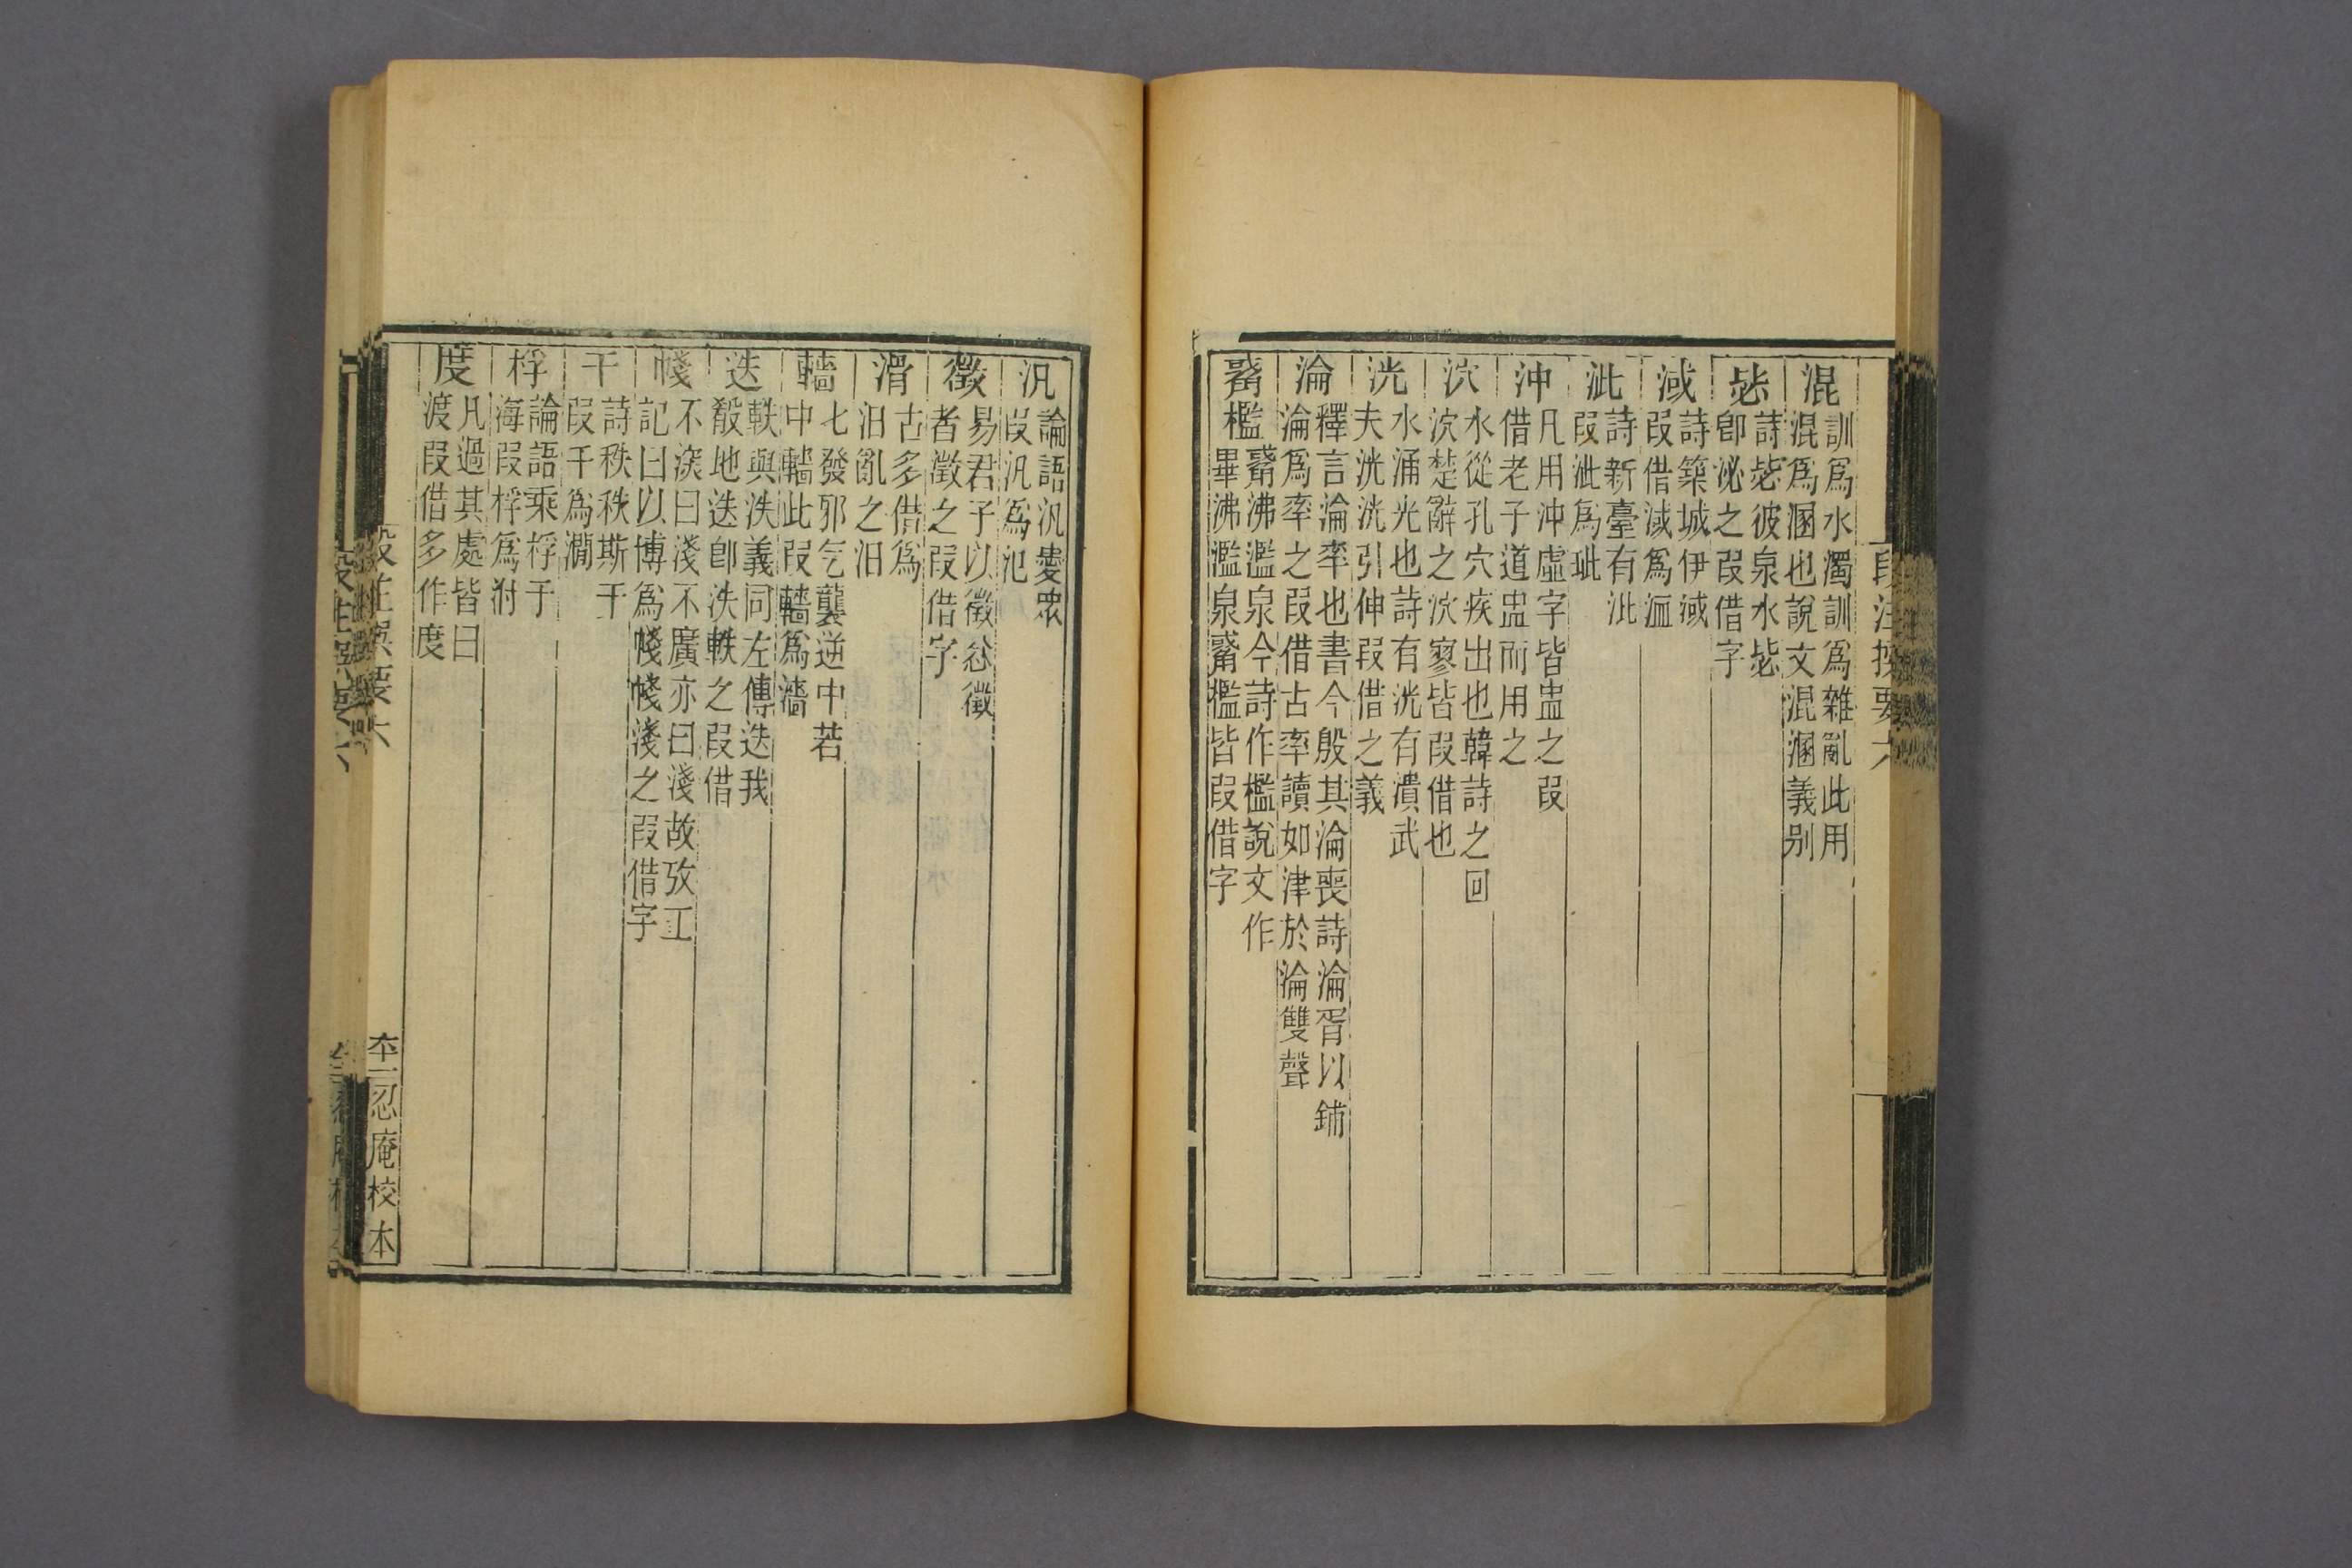 段注撰要六
混 訓爲水濁訓爲雜亂此用
混爲溷也說文混溷義别
毖 詩毖彼泉水毖
卽泌之叚借字
淢 詩築城伊淢
叚借淢爲洫
泚 詩新臺有泚
叚泚爲玼
沖 凡用沖虛字皆盅之叚
借老子道盅而用之
泬 水從孔穴疾出也韓詩之回
泬楚辭之泬寥皆叚借也
洸 水涌光也詩有洸有潰武
夫洸洸引伸叚借之義
淪 釋言淪率也書今殷其淪喪詩淪胥以鋪
淪爲率之叚借古率讀如津於淪雙聲
觱檻 觱沸濫泉今詩作檻說文作
畢沸濫泉觱檻皆叚借字
汎 論語汎愛衆
叚汎爲氾
徵 易君子以徵忿徵
者澂之叚借字
滑 古多借爲
汩亂之汩
轖 七發邪气襲逆中若
中轖此叚轖爲濇
迭 軼與泆義同左傳迭我
殽地迭卽泆軼之叚借
帴 不深曰淺不廣亦曰淺故攷工
記曰以博爲帴帴淺之叚借字
干 詩秩秩斯干
叚干爲澗
桴 論語乘桴于
海叚桴爲泭
度 凡過其處皆曰
渡叚借多作度
段注撰要六
忍庵校本